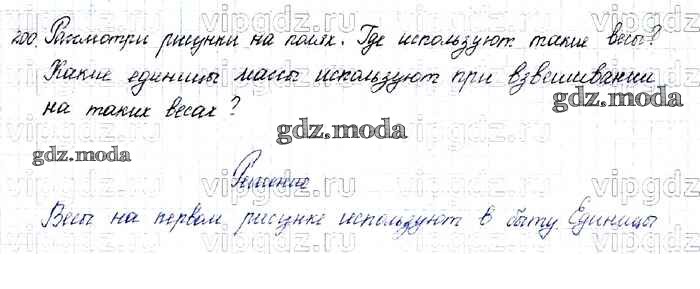 200. Рассмотри рисунки на полях. Где используют такие весы?
Какие единицы массы используют при взвешивании
на таких весах?
gdz.moda
gdz.moda
gdz.moda
Решение
Весы на первом рисунке используют в быту. Единицы
vipgdz.ru
vipgdz.ru
vipgdz.ru
vipgdz.ru